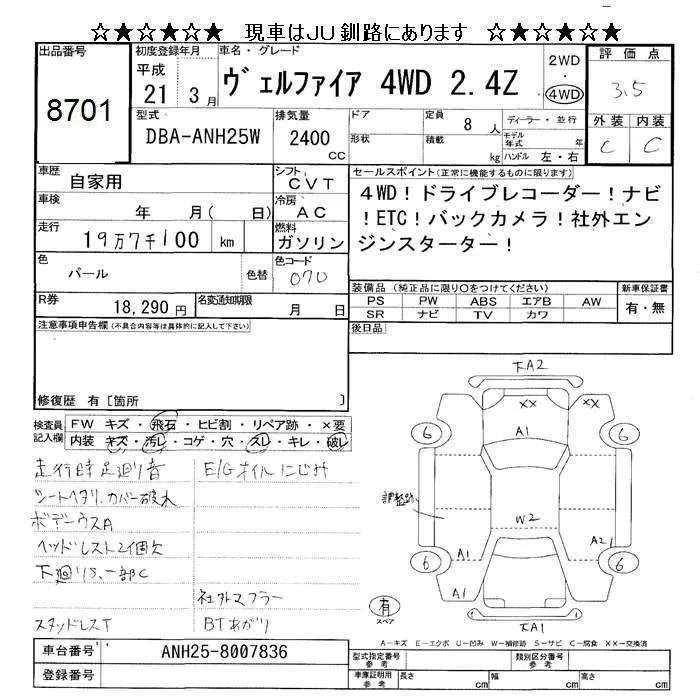 ☆★☆★☆★ 現車はJU釧路にあります ☆★☆★☆★
出品番号
8701
初度登録年月
平成
21 3月
車名・グレード
ヴェルファイア 4WD 2.4Z
2WD
・
4WD
評価点
3.5
外装 内装
C C
型式
DBA-ANH25W
排気量
2400
CC
ドア
形状
定員
8人
積載
kg
ディーラー・並行
モデル年式 年
ハンドル 左・右
車歴
自家用
シフト
CVT
車検
年 月( 日)
冷房
AC
走行
19万7千100 km
燃料
ガソリン
色
パール
色替
色コード
070
R券
18,290円
名変通知期限
月 日
セールスポイント(正常に機能するものに限ります)
4WD!ドライブレコーダー!ナビ
!ETC!バックカメラ!社外エン
ジンスターター!
装備品 (純正品に限り○をつけてください)
新車保証書
PS PW ABS エアB AW
有・無
SR ナビ TV カワ
後日品
注意事項申告欄(不具合内容等は具体的に記入して下さい)
修復歴 有〔箇所 〕
検査員記入欄
FW キズ・飛石・ヒビ割・リペア跡・×要
内装 キズ・汚レ・コゲ・穴・スレ・キレ・破レ
走行時足廻り音
E/Gオイルにじみ
シートヘタリ、カバー破大
ボデーウスA
ヘッドレスト2個欠
下廻りS、一部C
社外マフラー
スタッドレスT
BTあがり
下A2
XX XX
6 6
A1
W2
A2
A1 A1
6 6
A1
下A1
有
スペア
A-キズ E-エクボ U-凹み W-補修跡 S-サビ C-腐食 XX-交換済
車台番号
ANH25-8007836
登録番号
型式指定番号
参考
類別区分番号
参考
車庫証明用
参考
長さ cm
幅 cm
高さ cm